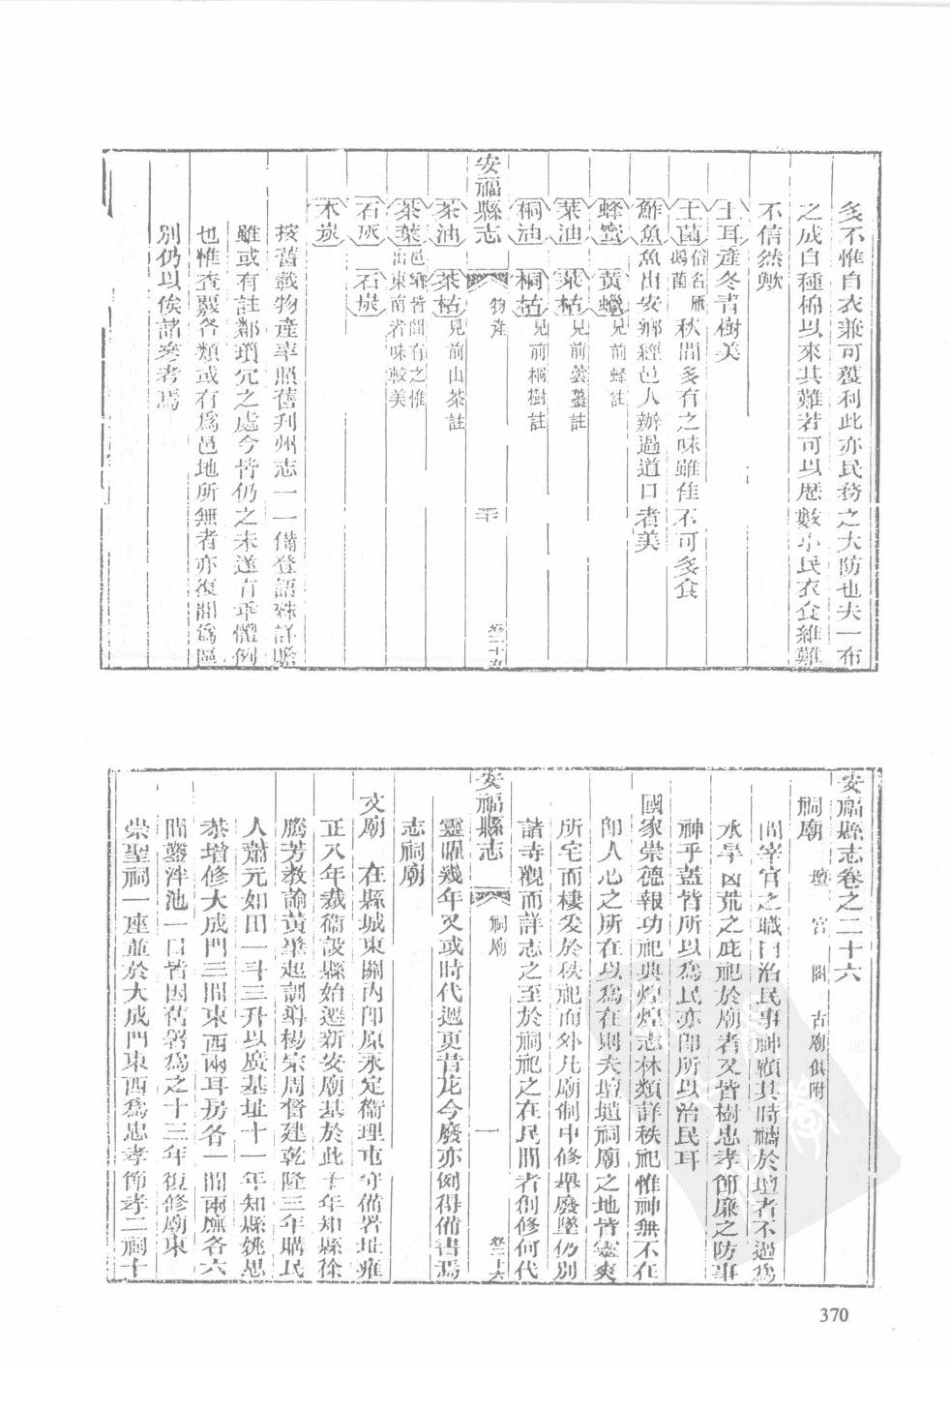 多不惟自衣兼可獲利此亦民務之大防也夫一布
之成自種棉以來其難若可以歷數小民衣食維難
不信然歟
土耳產冬青樹美
土菌俗名雁鵝菌秋間多有之味雖佳不可多食
鮓魚魚出安鄉經邑人辦過道口者美
蜂蜜 黃蠟見前蜂註
菜油 菜枯見前蕓薹註
桐油 桐枯見前桐樹註
安福縣志 物產 三十 卷二十五
茶油 茶枯見前山茶註
茶葉邑鄉皆間有之惟出東南者味較美
石灰 石炭
木炭
按舊載物產率照舊刋州志一一備登語殊詳贍
雖或有註鄰瑣冗之處今皆仍之未遂有乖體例
也惟查覈各類或有爲邑地所無者亦復細爲區
別仍以俟諸參考焉
安福縣志卷之二十六
祠廟 壇 宮 閣 古廟俱附
間宰官之職曰治民事神顧其時禱於壇者不過爲
水旱凶荒之庇祀於廟者又皆樹忠孝節廉之防事
神乎蓋皆所以爲民亦卽所以治民耳
國家崇德報功祀典煌煌志林類詳秩祀惟神無不在
卽人心之所在以爲在則夫壇壝祠廟之地皆靈爽
所宅而棲爰於秩祀而外凡廟制中修舉廢墜仍別
諸寺觀而詳志之至於祠祀之在民間者創修何代
安福縣志 祠廟 一 卷二十六
靈曜幾年又或時代遞更昔龙今廢亦例得備書焉
志祠廟
文廟 在縣城東關內卽原永定衞理屯守備署址雍
正八年裁衞設縣始遷新安廟基於此十年知縣徐
騰芳教諭黃肇起訓導楊宗周督建乾隆三年購民
人蕭元如田一斗三升以廣基址十一年知縣姚思
恭增修大成門三間東西兩耳房各一間兩廡各六
間甃泮池一口皆因舊署爲之十三年復修廟東
崇聖祠一座並於大成門東西爲忠孝節孝二祠十
370